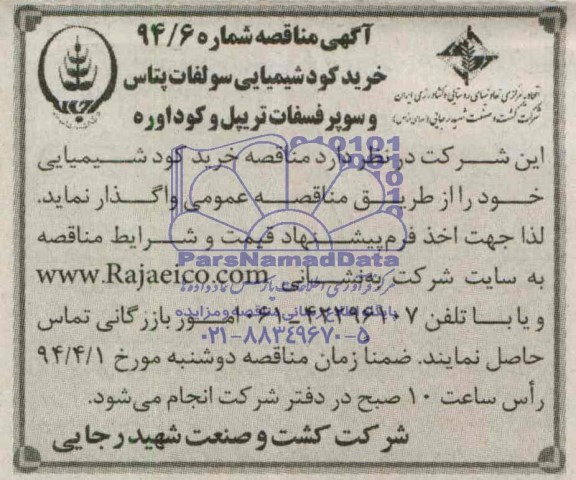 آگهی مناقصه شماره ۹۴/۶
خرید کود شیمیایی سولفات پتاس
و سوپر فسفات تریپل و کود اوره
اتحادیه مرکزی تعاونیهای روستایی و کشاورزی ایران
شرکت کشت و صنعت شهید رجایی (سهامی خاص)
این شرکت در نظر دارد مناقصه خرید کود شیمیایی
خود را از طریق مناقصه عمومی واگذار نماید.
لذا جهت اخذ فرم پیشنهاد قیمت و شرایط مناقصه
به سایت شرکت به نشانی www.Rajaeico.com
و یا با تلفن ۴۲۲۹۶۱۰۷-۰۶۱ امور بازرگانی تماس
حاصل نمایند. ضمنا زمان مناقصه دوشنبه مورخ ۹۴/۴/۱
رأس ساعت ۱۰ صبح در دفتر شرکت انجام می‌شود.
شرکت کشت و صنعت شهید رجایی
ParsNamadData
۰۲۱-۸۸۳۴۹۶۷۰-۵